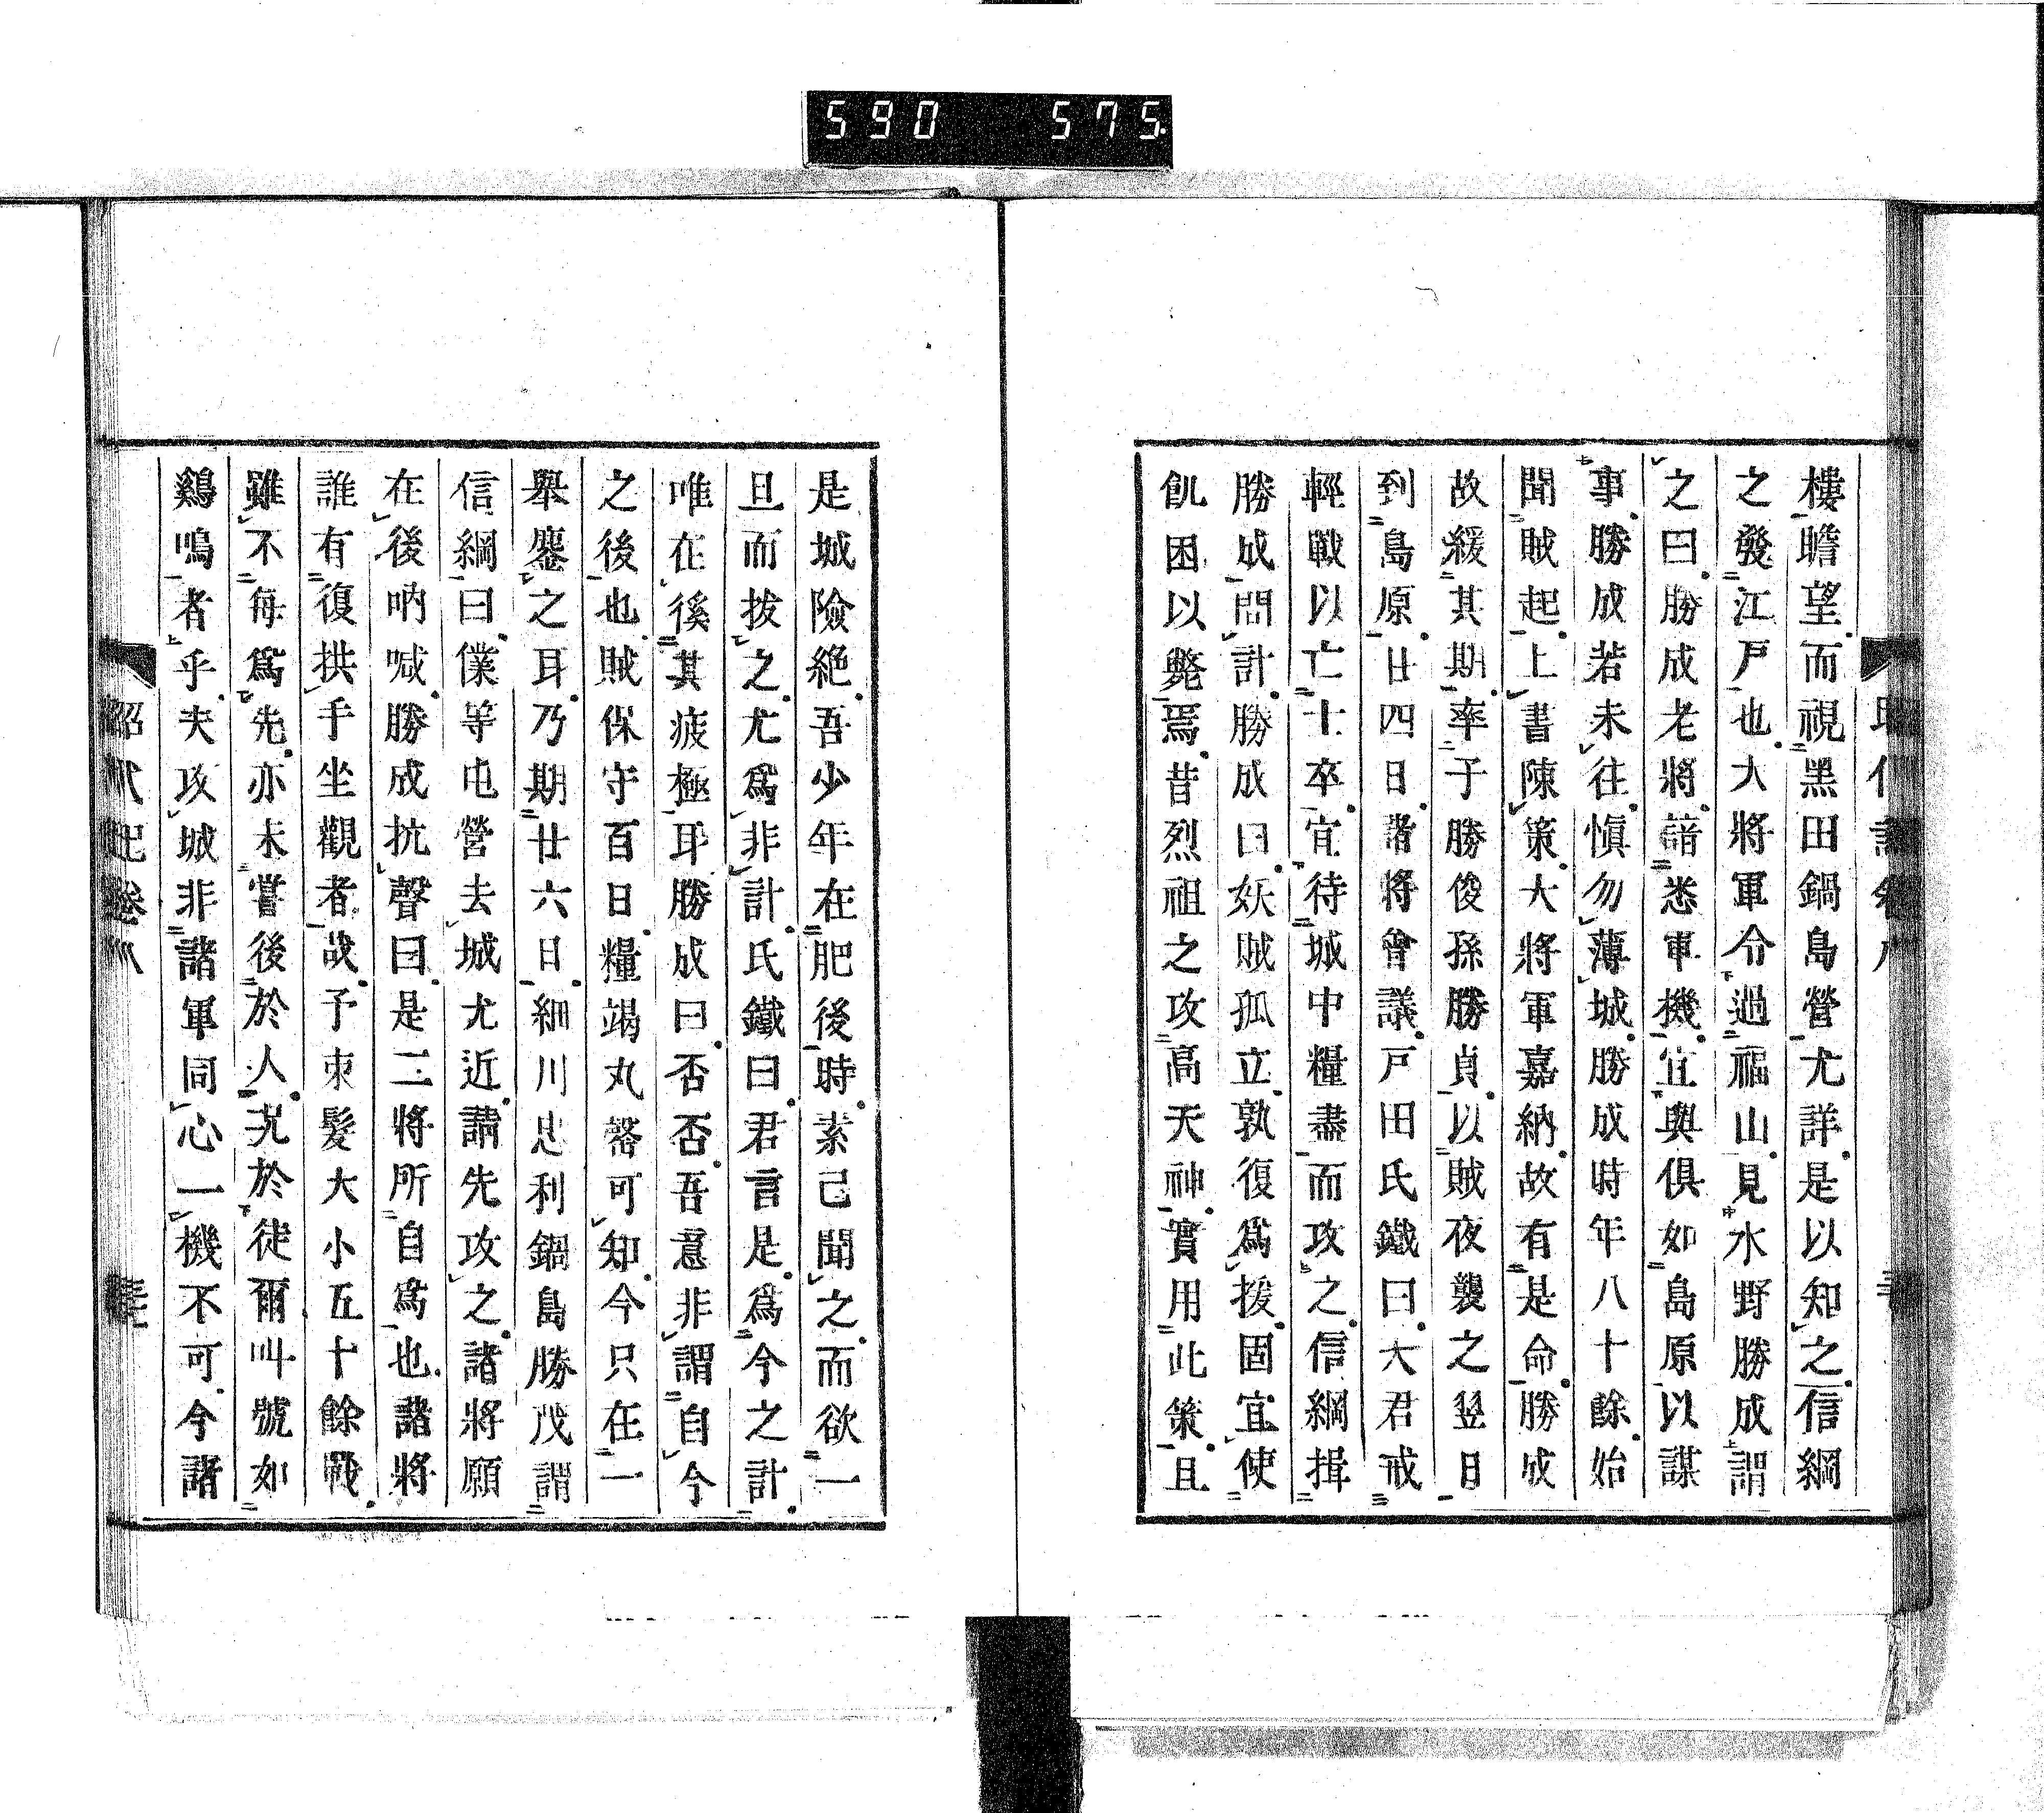 590 575
樓瞻望而視黑田鍋島營尤詳是以知之信綱
之發江戸也大將軍令過福山見水野勝成謂
之曰勝成老將諳悉軍機宜與俱如島原以謀
事勝成若未往愼勿薄城勝成時年八十餘始
聞賊起上書陳策大將軍嘉納故有是命勝成
故緩其期率于勝俊孫勝貞以賊夜襲之翌日
到島原廿四日諸將會議戸田氏鐵曰大君戒
輕戰以亡士卒宜待城中糧盡而攻之信綱揖
勝成問計勝成曰妖賊孤立孰復爲援固宜使
飢困以斃焉昔烈祖之攻高天神實用此策且
是城險絶吾少年在肥後時素已聞之而欲一
旦而拔之尤爲非計氏鐵曰君言是爲今之計
唯在徯其疲極耳勝成曰否否吾意非謂自今
之後也賊保守百日糧竭丸罄可知今只在一
舉鏖之耳乃期廿六日細川忠利鍋島勝茂謂
信綱曰僕等屯營去城尤近請先攻之諸將願
在後吶喊勝成抗聲曰是二將所自爲也諸將
誰有復拱手坐觀者哉予束髮大小五十餘戰
雖不毎爲先亦未嘗後於人况於徒爾叫號如
鷄鳴者乎夫攻城非諸軍同心一機不可今諸
昭代記卷八